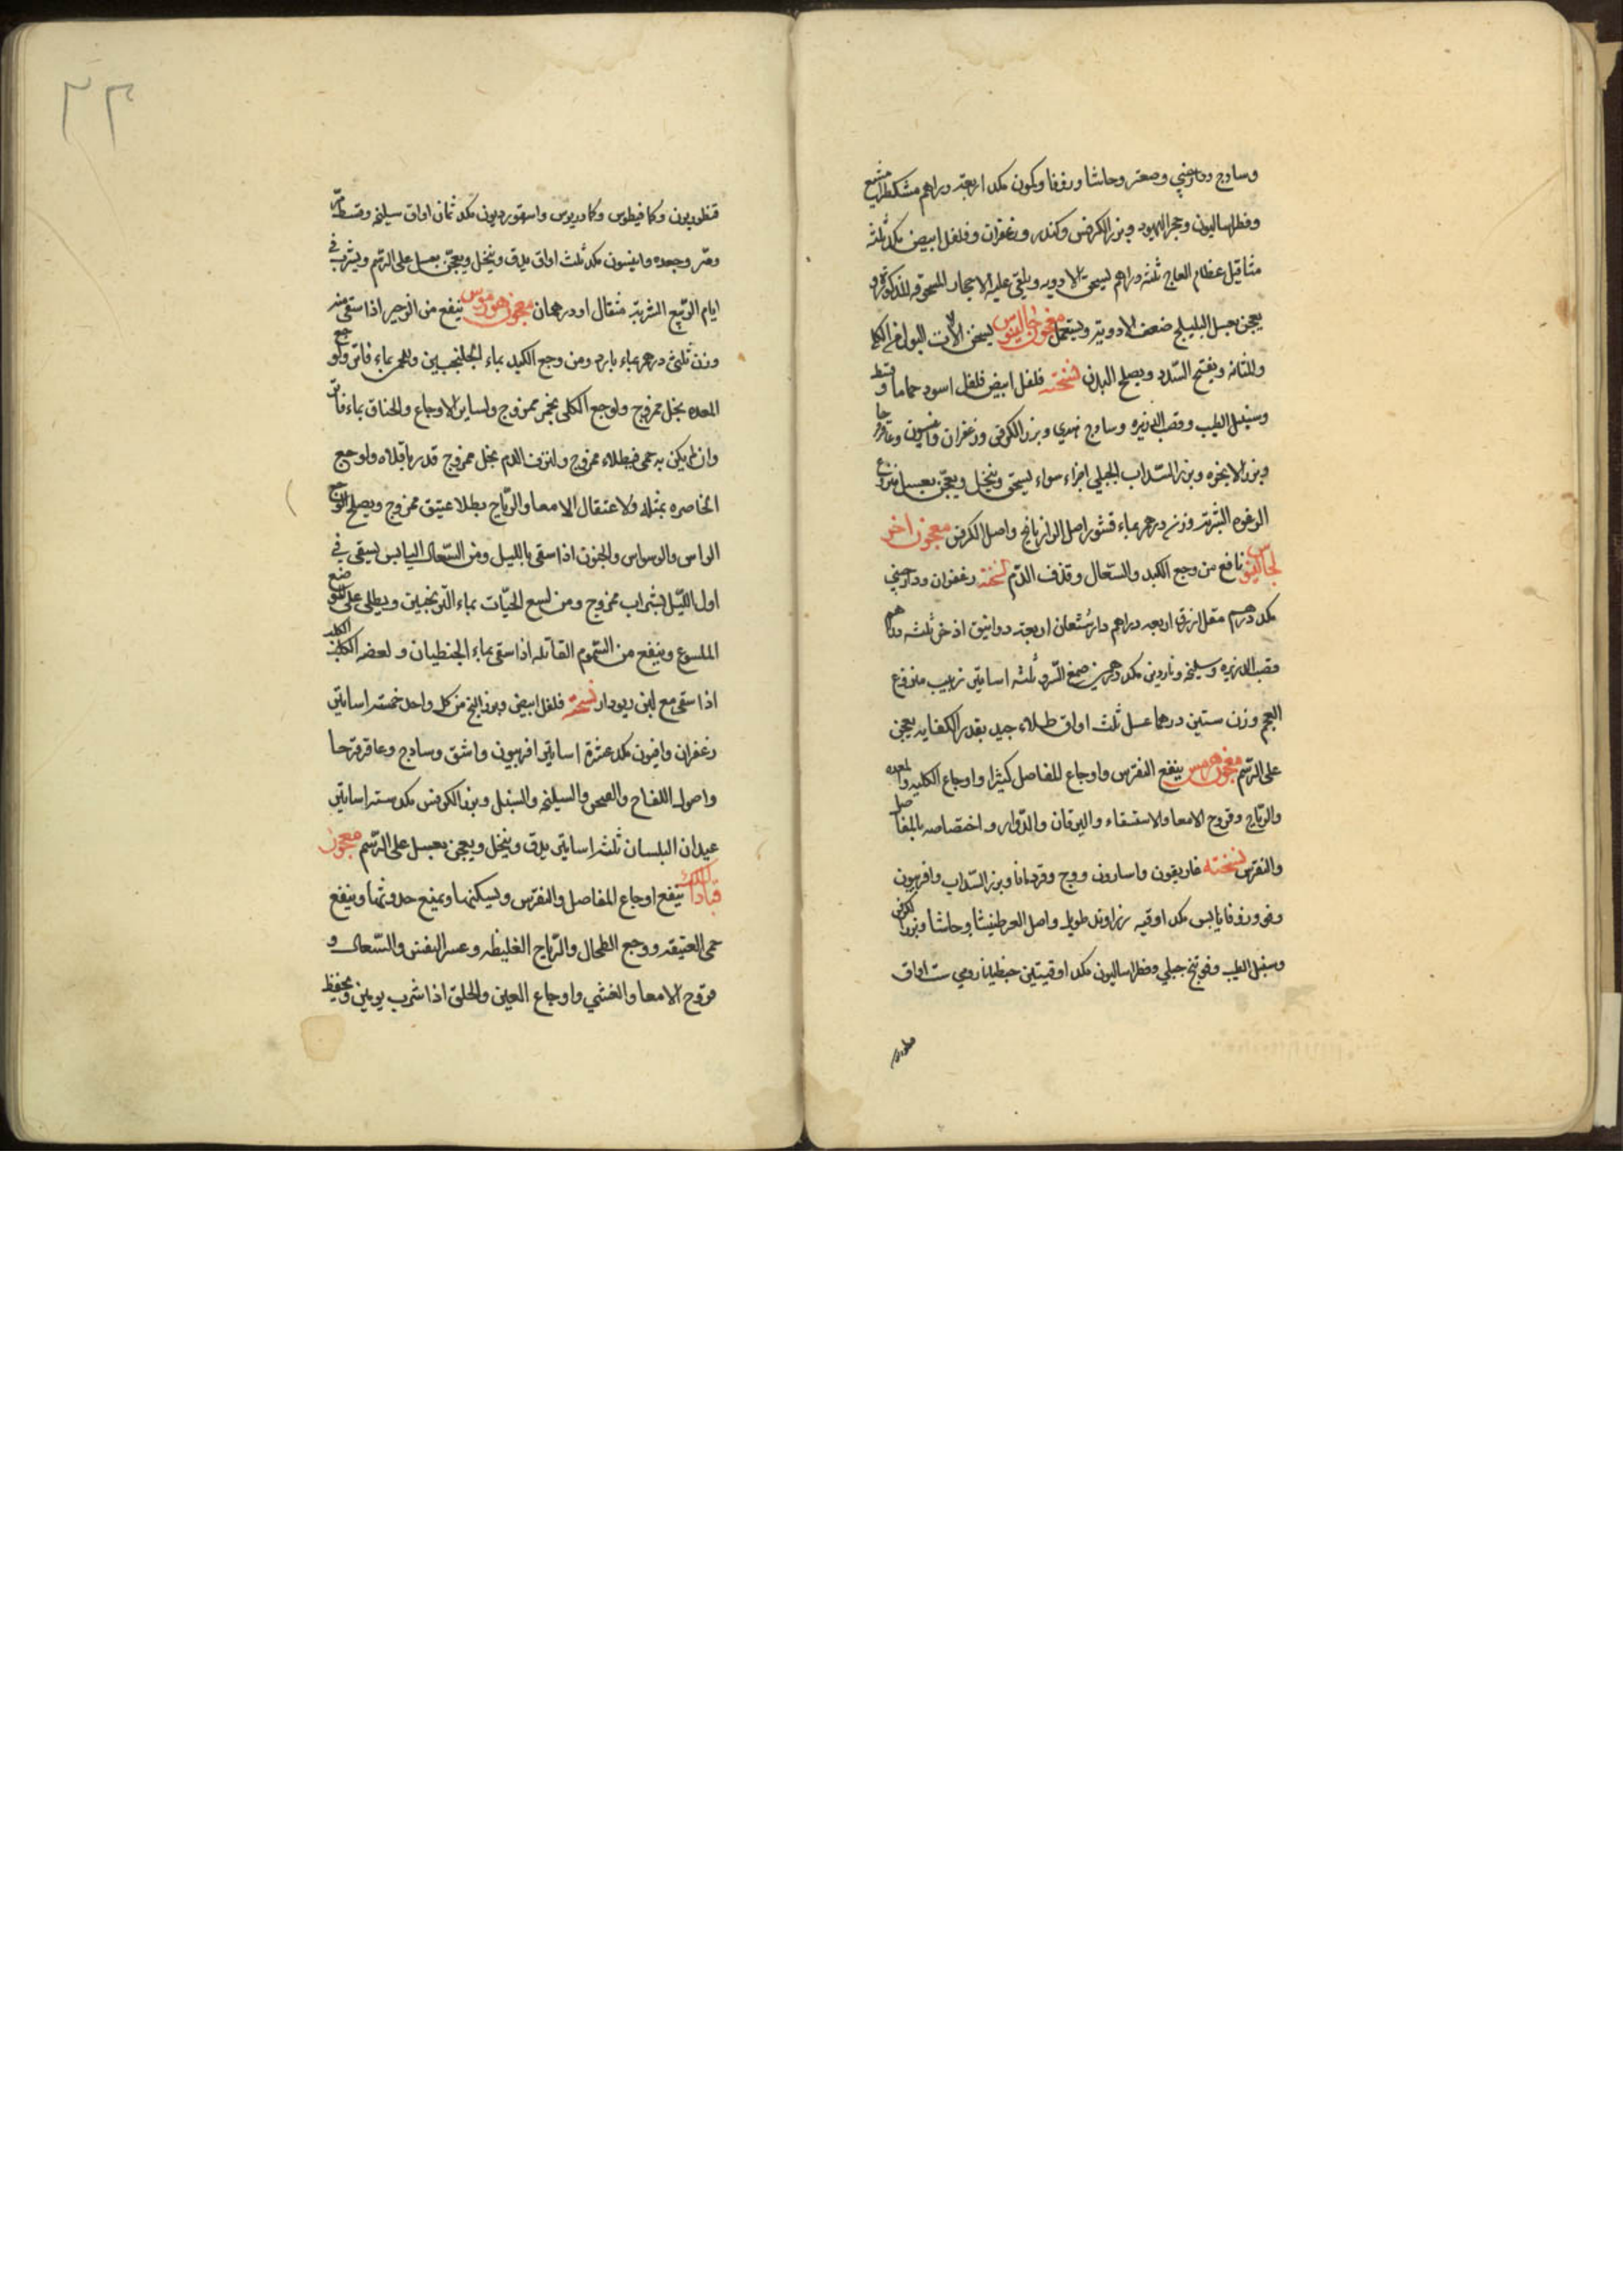 وسادج ودارصيني وصعتر وحاشا وزوفا وكمون مكد اربعة دراهم مشكطرامشيع
وفطراساليون وحجر اليهود وبزر الكرفس وكندر وزعفران وفلفل ابيض مكد ثلثه
مثاقيل عظام العاج ثلثه دراهم يسحق الادويه ويلقي عليه الاحجار المسحوقه المذكوره و
يعجن بعسل البليلج ضعف الادوية ويستعمل معجون جالينوس يسخن الات البول في الكلا
والمثانه ويفتح السدد ويصلح البدن نسخته فلفل ابيض فلفل اسود حماما وقسط
وسنبل الطيب وقصب الذريره وسادج هندي وبزر الكرفس وزعفران وانيسون وعاقرقرحا
وبزر الانجره وبزر السداب الجبلي اجزاء سواء يسحق وينخل ويعجن بعسل منزوع
الرغوه الشربة وزن درهم بماء قشور اصل الرازيانج واصل الكرفس معجون اخر
لجالينوس نافع من وجع الكبد والسعال وقذف الدم نسخته زعفران ودارصيني
مكد درهم مقل ازرق اربعه دراهم دارشيشعان اربعة دوانيق اذخر ثلثه دراهم
قصب الذريره وسليخه وناردين مكد درهمين صمغ السرو ثلثه اساتير زبيب منزوع
العجم وزن ستين درهما عسل ثلث اواق طلاء جيد بقدر الكفايه يعجن
على الرسم معجون هرمس ينفع النقرس واوجاع المفاصل كثيرا واوجاع الكليه والمعده
والرياح وقروح الامعا والاستسقاء واليرقان والدوار واختصاصه بالمفاصل
والنقرس نسخته غاريقون واسارون ووج وقردمانا وبزر السداب وافربيون
وفو وزوفا يابس مكد اوقيه زراوند طويل واصل العرطنيثا وحاشا وبزر الكرفس
وسنبل الطيب وفوتنج جبلي وفطراساليون مكد اوقيتين جنطيانا رومي ست اواق
قنطوريون
قنطوريون وكمافيطوس وكمادريوس واسقورديون مكد ثمان اواق سليخه وقسط مر
ومر وجعده وانيسون مكد ثلث اواق يدق وينخل ويعجن بعسل على الرسم ويشرب في
ايام الربيع الشربة مثقال او درهمان معجون هرمس ينفع من الزحير اذا سقى منه
وزن ثلثي درهم بماء بارد ومن وجع الكبد بماء الجلنجبين وللحمى بماء فاتر ولوجع
المعده بخل ممزوج ولوجع الكلى بخمر ممزوج ولساير الاوجاع والخناق بماء فاتر
وان لم يكن به حمى فبطلاء ممزوج ولنزف الدم بخل ممزوج قدر باقلاه ولوجع
الخاصره بمثله ولاعتقال الامعا والرياح بطلا عتيق ممزوج ويصلح لوجع
الراس والوسواس والجنون اذا سقى بالليل ومن السعال اليابس يسقى في
اول الليل بشراب ممزوج ومن لسع الحيات بماء الترنجبين ويطلى على موضع
الملسوع وينفع من السموم القاتله اذا سقى بماء الجنطيان ولعضه الكلب الكلب
اذا سقى مع لبن ديودار نسخته فلفل ابيض وبزر البنج من كل واحد خمسة اساتير
زعفران وافيون مكد عشرة اساتير افربيون واشق وسادج وعاقرقرحا
واصول اللفاح والسليخه والسنبل وبزر الكرفس مكد سته اساتير
عيدان البلسان ثلثه اساتير يدق وينخل ويعجن بعسل على الرسم معجون
قباد الملك ينفع اوجاع المفاصل والنقرس ويسكنها ويمنع حدوثها وينفع
حمى العتيقه ووجع الطحال والرياح الغليظه وعسر النفس والسعال و
قروح الامعا والغشي واوجاع العين والحلق اذا شرب يومين ويحفظ
٢٣